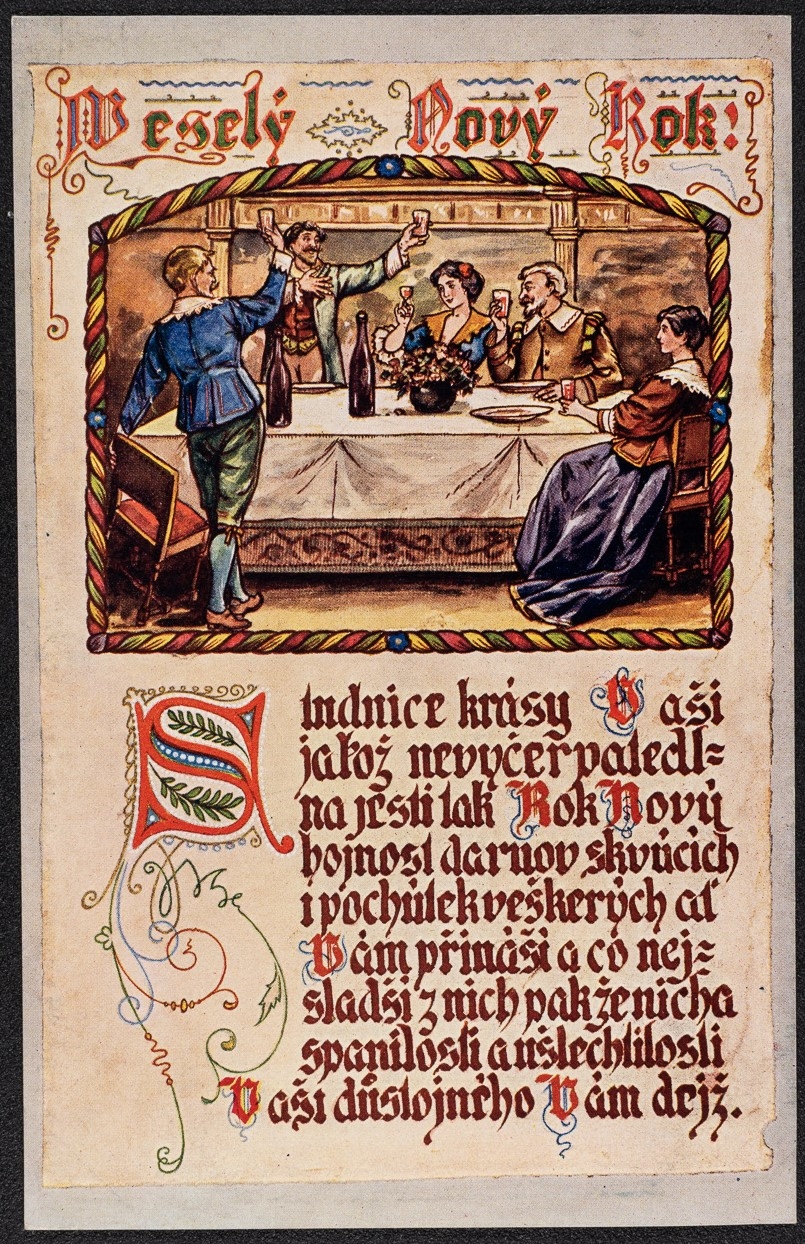 Veselý Nový Rok!
Studnice krásy Vaší
jakož nevyčerpatedl=
na jesti tak Rok Nový
hojnost daruov skvúcích
i pochútek veškerých ať
Vám přináší a co nej=
sladší z nich pak ženicha
spanilosti a ušlechtilosti
Vaší důstojného Vám dejž.